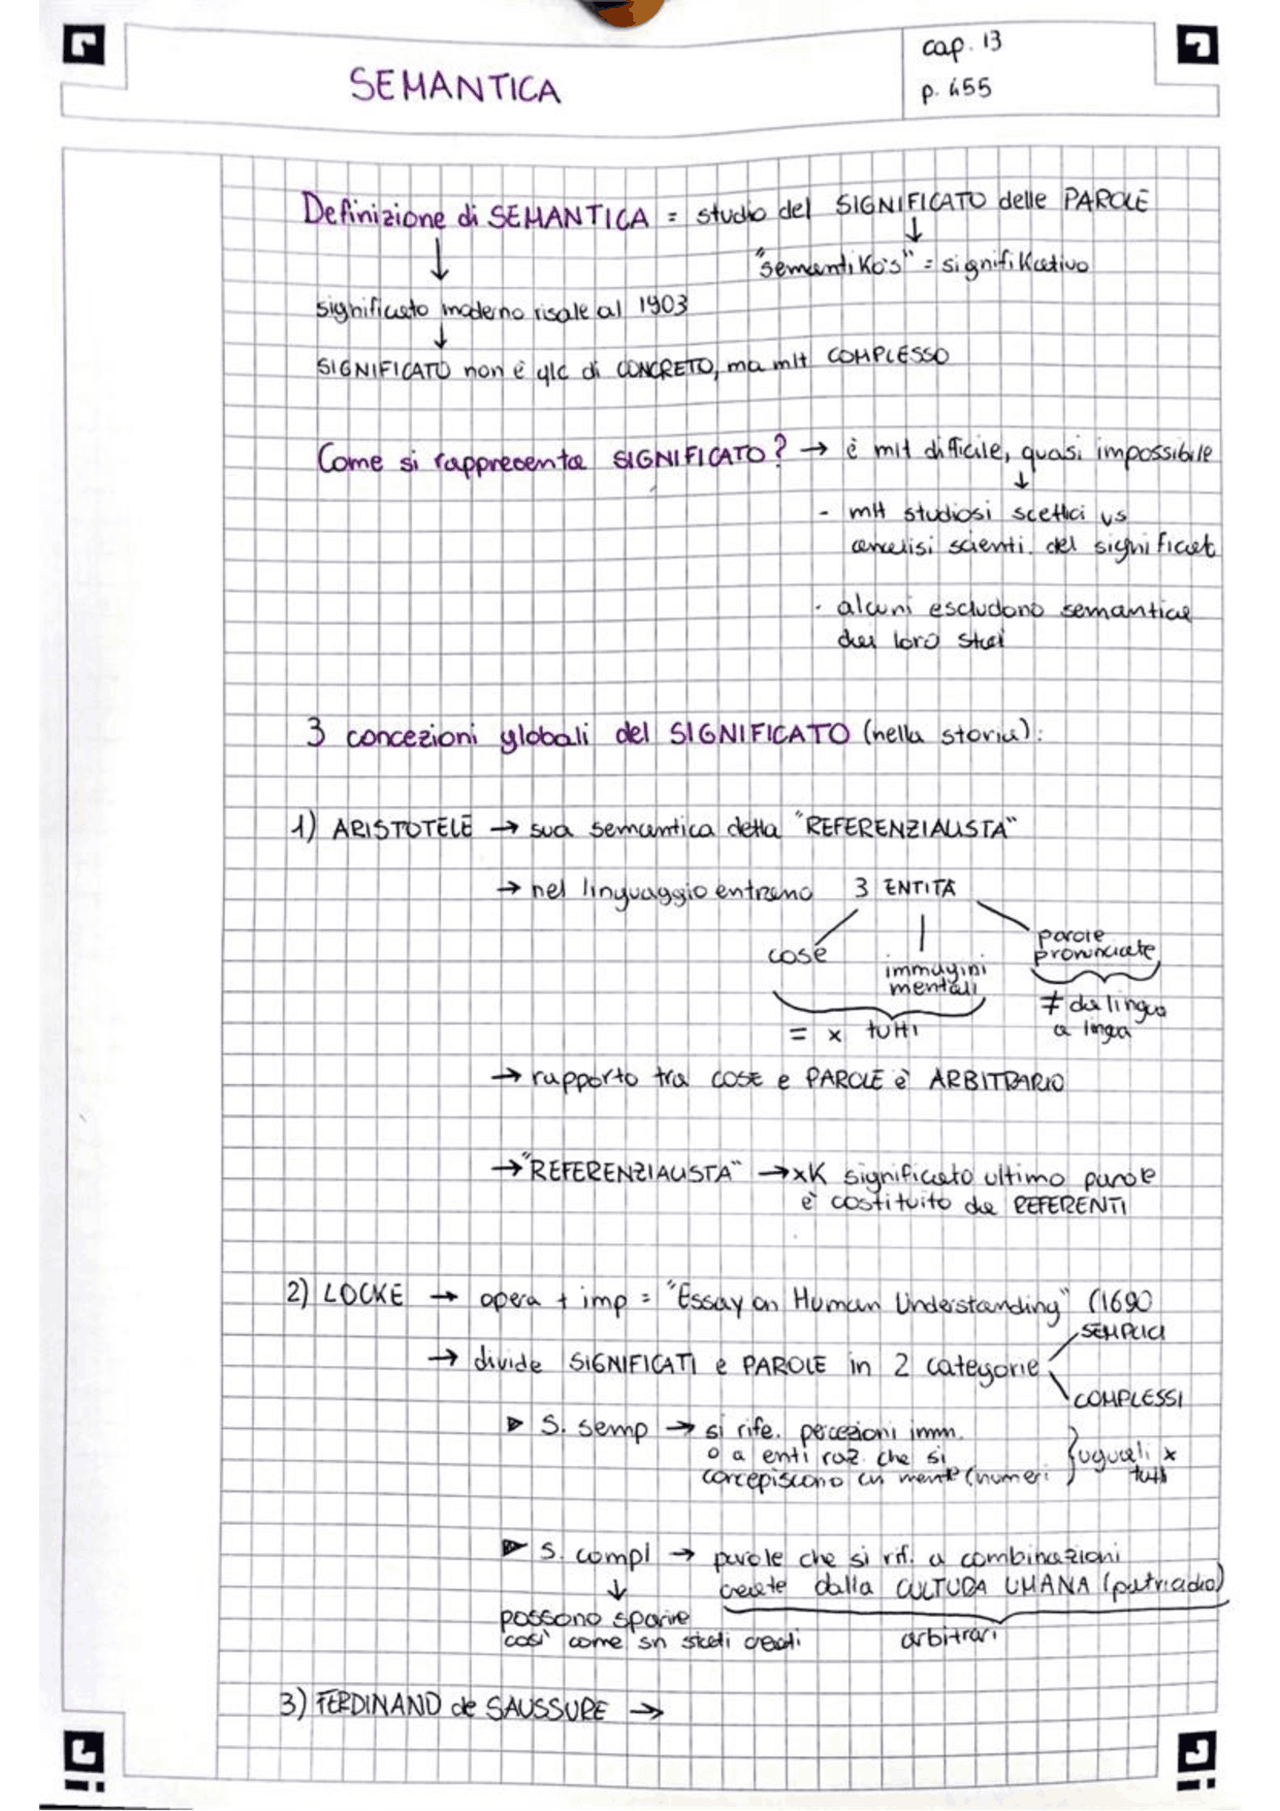 SEMANTICA
cap. 13
p. 455
Definizione di SEMANTICA = studio del SIGNIFICATO delle PAROLE
↓ ↓
"semantiKo's" = signifiKativo
significato moderno risale al 1903
↓
SIGNIFICATO non è qlc di CONCRETO, ma mlt COMPLESSO
Come si rappresenta SIGNIFICATO? → è mlt difficile, quasi impossibile
↓
- mlt studiosi scettici vs
analisi scienti. del significat
- alcuni escludono semantica
da loro studi
3 concezioni globali del SIGNIFICATO (nella storia):
1) ARISTOTELE → sua semantica detta "REFERENZIALISTA"
→ nel linguaggio entrano 3 ENTITÀ
cose
immagini
mentali
parole
pronunciate
= x tutti
≠ da lingua
a lingua
→ rapporto tra COSE e PAROLE è ARBITRARIO
→ "REFERENZIALISTA" → xK significato ultimo parole
è costituito da REFERENTI
2) LOCKE → opera + imp = "Essay on Human Understanding" (1690
→ divide SIGNIFICATI e PAROLE in 2 categorie
SEMPLICI
COMPLESSI
▷ S. semp → si rife. percezioni imm.
o a enti raz. che si
concepiscono in mente (numeri
} uguali x
tutti
▷ S. compl → parole che si rif. a combinazioni
create dalla CULTURA UMANA (patriadio)
↓
possono sparire
così come sn stati creati
arbitrari
3) FERDINAND de SAUSSURE →